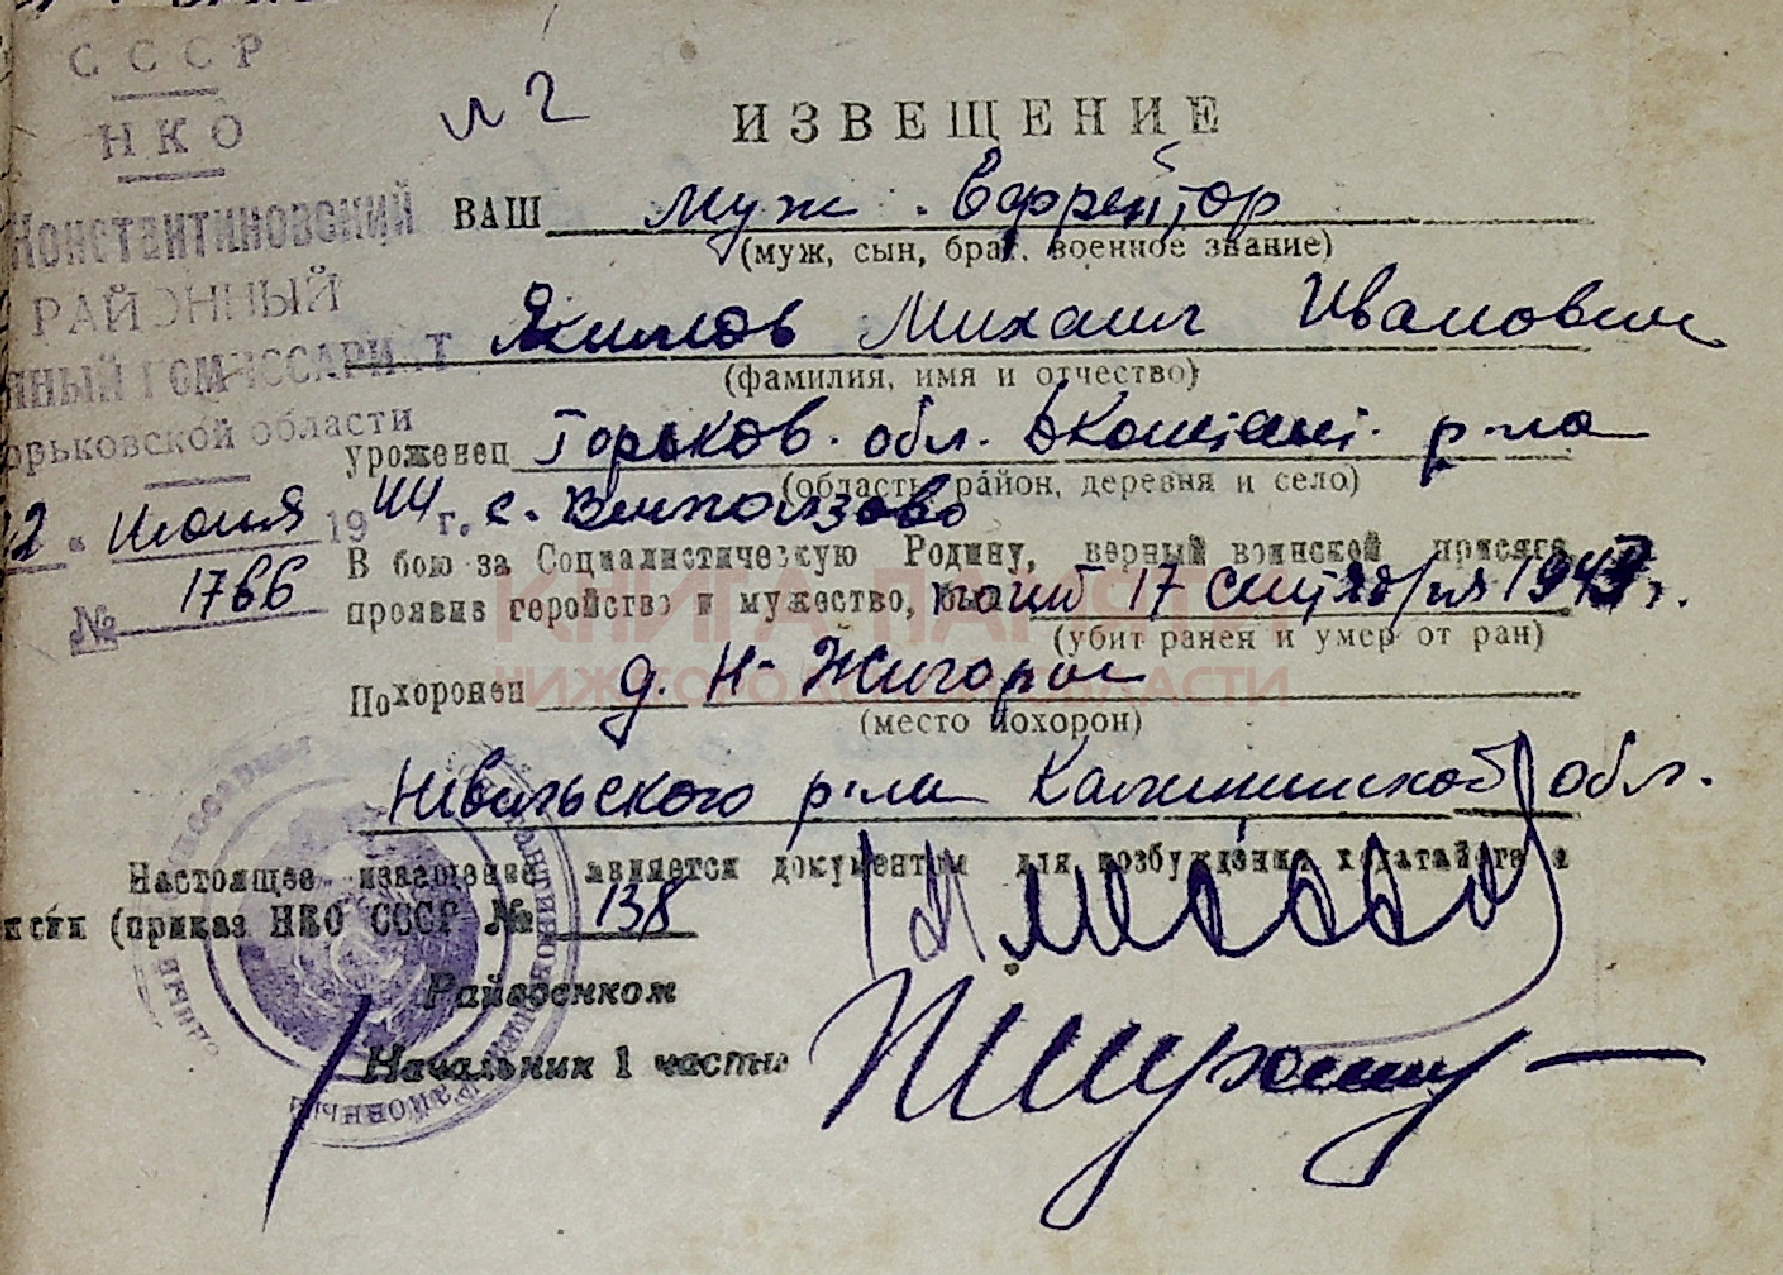 СССР
НКО
Константиновский
РАЙОННЫЙ
ННЫЙ КОМИССАРИАТ
орьковской области
2 " июня 1944 г.
№ 1766
и 2
ИЗВЕЩЕНИЕ
ВАШ муж. Ефрейтор
(муж, сын, брат. военное звание)
Якимов Михаил Иванович
(фамилия, имя и отчество)
уроженец Горьков. обл. р-на
(область, район, деревня и село)
с.
В бою за Социалистическую Родину, верный воинской присяге,
проявив геройство и мужество, был погиб 17 сентября 1943 г.
(убит ранен и умер от ран)
Похоронен д. Н-Жигоры
(место похорон)
Невельского р-на Калининской обл.
Настоящее извещение является документом для возбуждения ходатайства
нсии (приказ НКО СССР № 138
Райвоенком
Начальник 1 части
КНИГА ПАМЯТИ
НИЖЕГОРОДСКОЙ ОБЛАСТИ